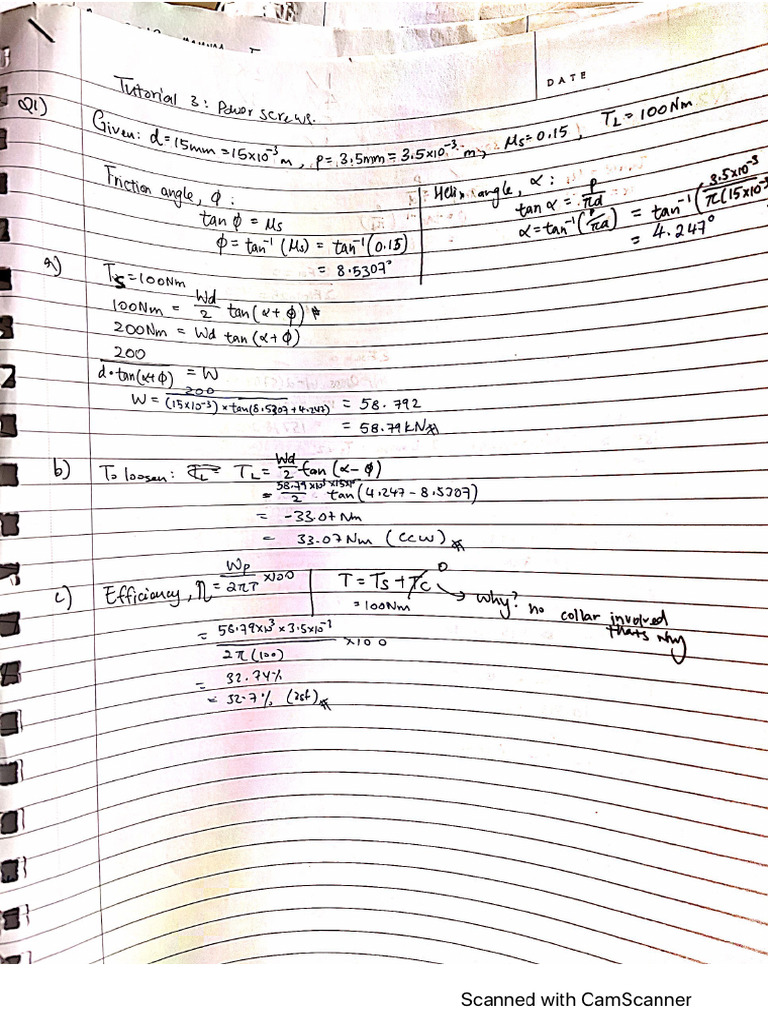 DATE
Tutorial 3: Power screws.
Q1) Given: d=15mm=15x10⁻³ m, p=3.5mm=3.5x10⁻³ m, μs=0.15, TL=100Nm
Friction angle, φ:
tan φ = μs
φ = tan⁻¹ (μs) = tan⁻¹(0.15)
= 8.5307°
Helix angle, α:
tan α = p/πd
α = tan⁻¹(p/πd) = tan⁻¹(3.5x10⁻³/π(15x10⁻³
= 4.247°
a) Ts=100Nm
100Nm = Wd/2 tan(α+φ)
200Nm = Wd tan(α+φ)
200/d·tan(α+φ) = W
W = 200/(15x10⁻³)xtan(8.5307+4.247) = 58.792
= 58.79kN
b) To loosen: TL = Wd/2 tan(α-φ)
= 58.79x10³x15x10⁻³/2 tan(4.247-8.5307)
= -33.07Nm
= 33.07Nm (CCW)
c) Efficiency, η = Wp/2πT x100
= 58.79x10³ x 3.5x10⁻³/2π(100) x100
= 32.74%
= 32.7% (3sf)
T = Ts + Tc 0
= 100Nm
why? no collar involved
thats why
Scanned with CamScanner